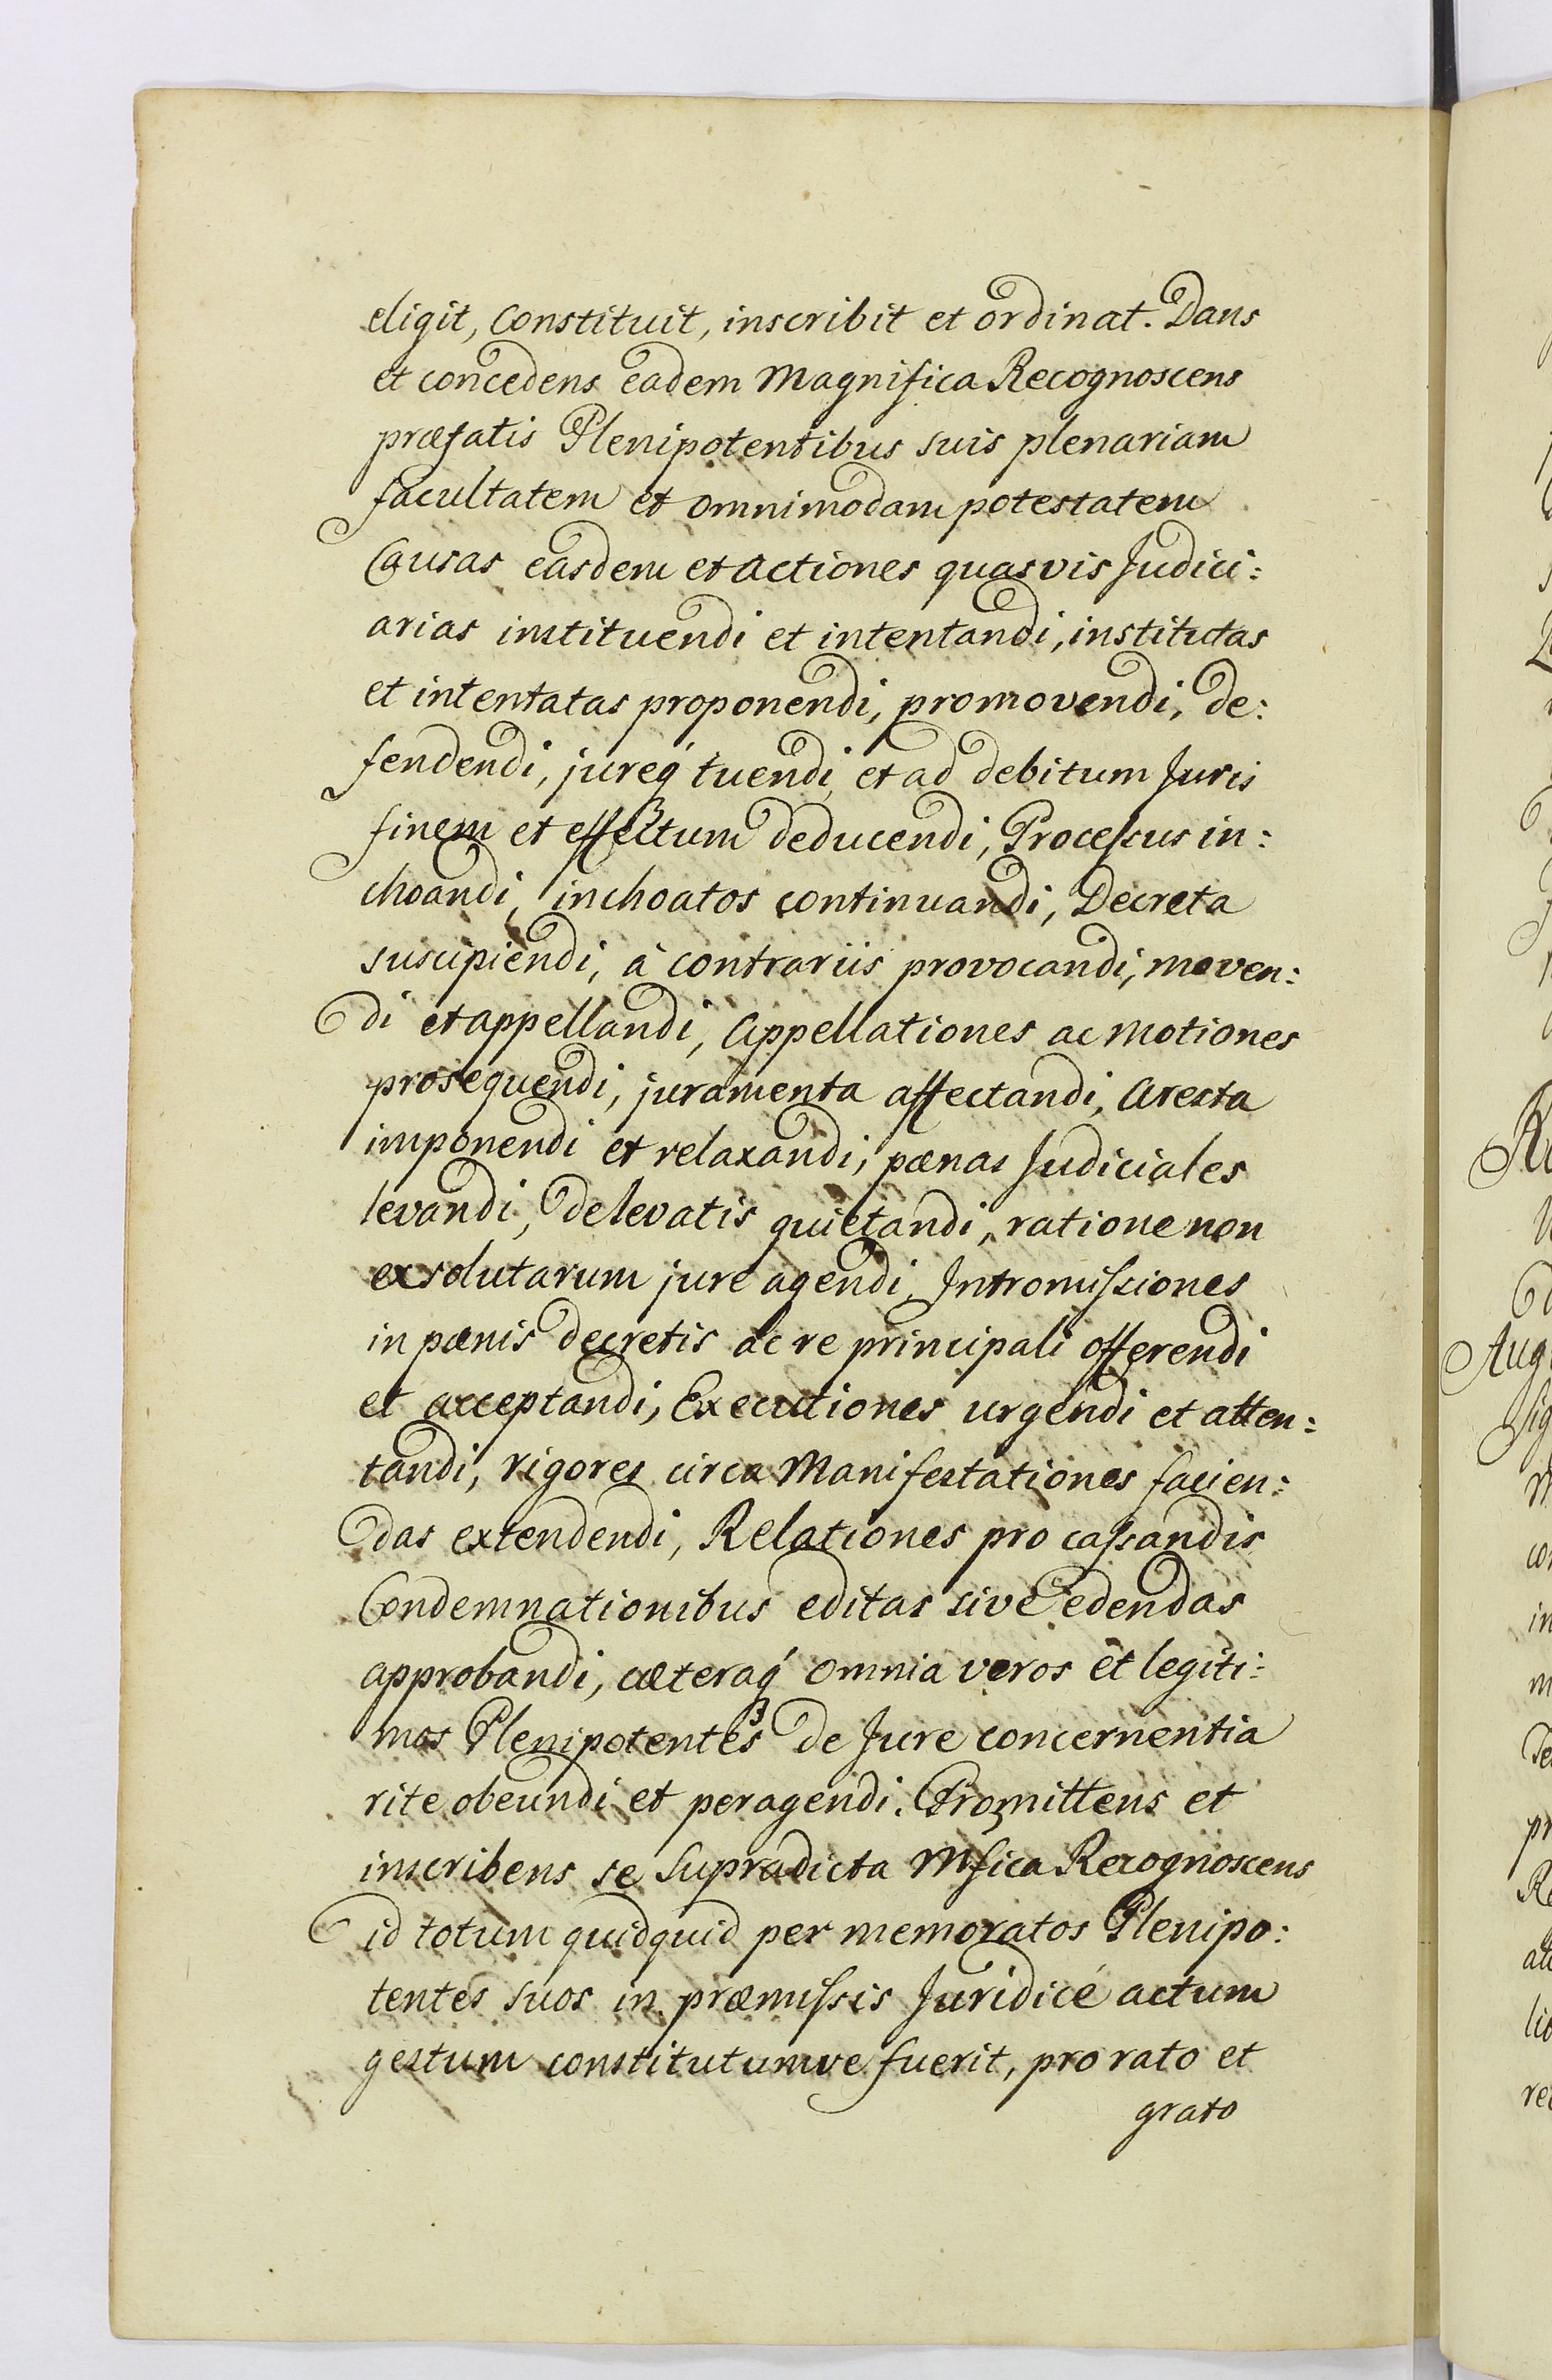 eligit, Constituit, inscribit et ordinat. Dans
et concedens eadem Magnifica Recognoscens
præfatis Plenipotentibus suis plenariam
facultatem et omnimodam potestatem
Causas easdem et actiones quasvis Judici:
arias instituendi et intentandi, institutas
et intentatas proponendi, promovendi, de:
fendendi, jureq́ tuendi, et ad debitum Juris
finem et effectum deducendi, Processus in:
choandi, inchoatos continuandi, Decreta
suscipiendi, à contrariis provocandi, moven:
di et appellandi, Appellationes ac motiones
prosequendi, juramenta affectandi, Aresta
imponendi et relaxandi, pænas Judiciales
levandi, de levatis quietandi, ratione non
exsolutarum jure agendi, Intromissiones
in pænis decretis ac re principali offerendi
et acceptandi, Executiones urgendi et atten:
tandi, rigores circa Manifestationes facien:
das extendendi, Relationes pro cassandis
Condemnationibus editas sive edendas
approbandi, cæteraq́ omnia veros et legiti:
mos Plenipotentes de Jure concernentia
rite obeundi et peragendi. Promittens et
inscribens se Supradicta Mfica Recognoscens
id totum quidquid per memoratos Plenipo:
tentes suos in præmissis Juridicé actum
gestum constitutumve fuerit, pro rato et
grato